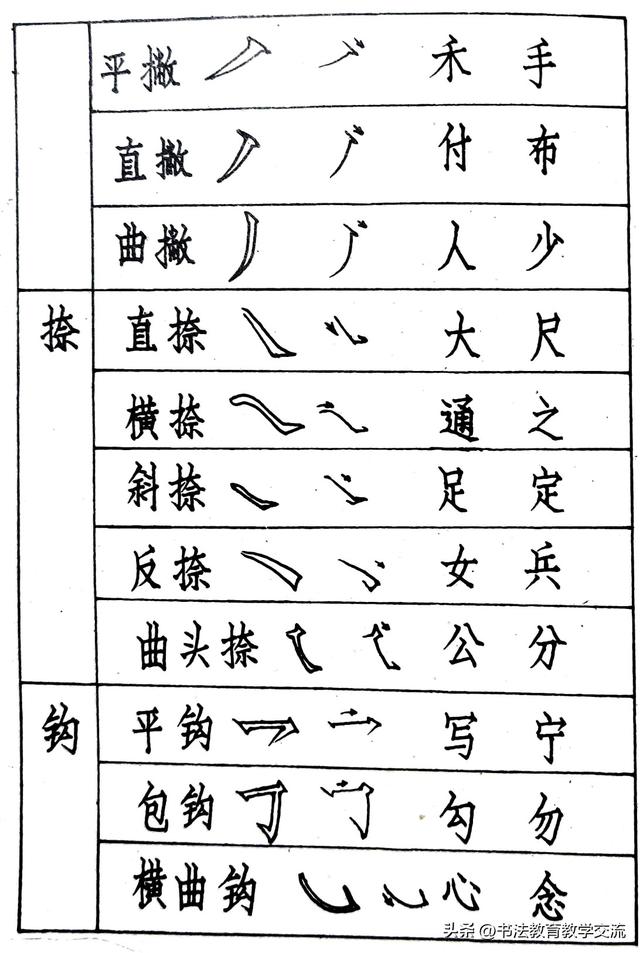 平撇 禾 手
直撇 付 布
曲撇 人 少
捺 直捺 大 尺
横捺 通 之
斜捺 足 定
反捺 女 兵
曲头捺 公 分
钩 平钩 写 宁
包钩 勾 勿
横曲钩 心 念
头条 @书法教育教学交流